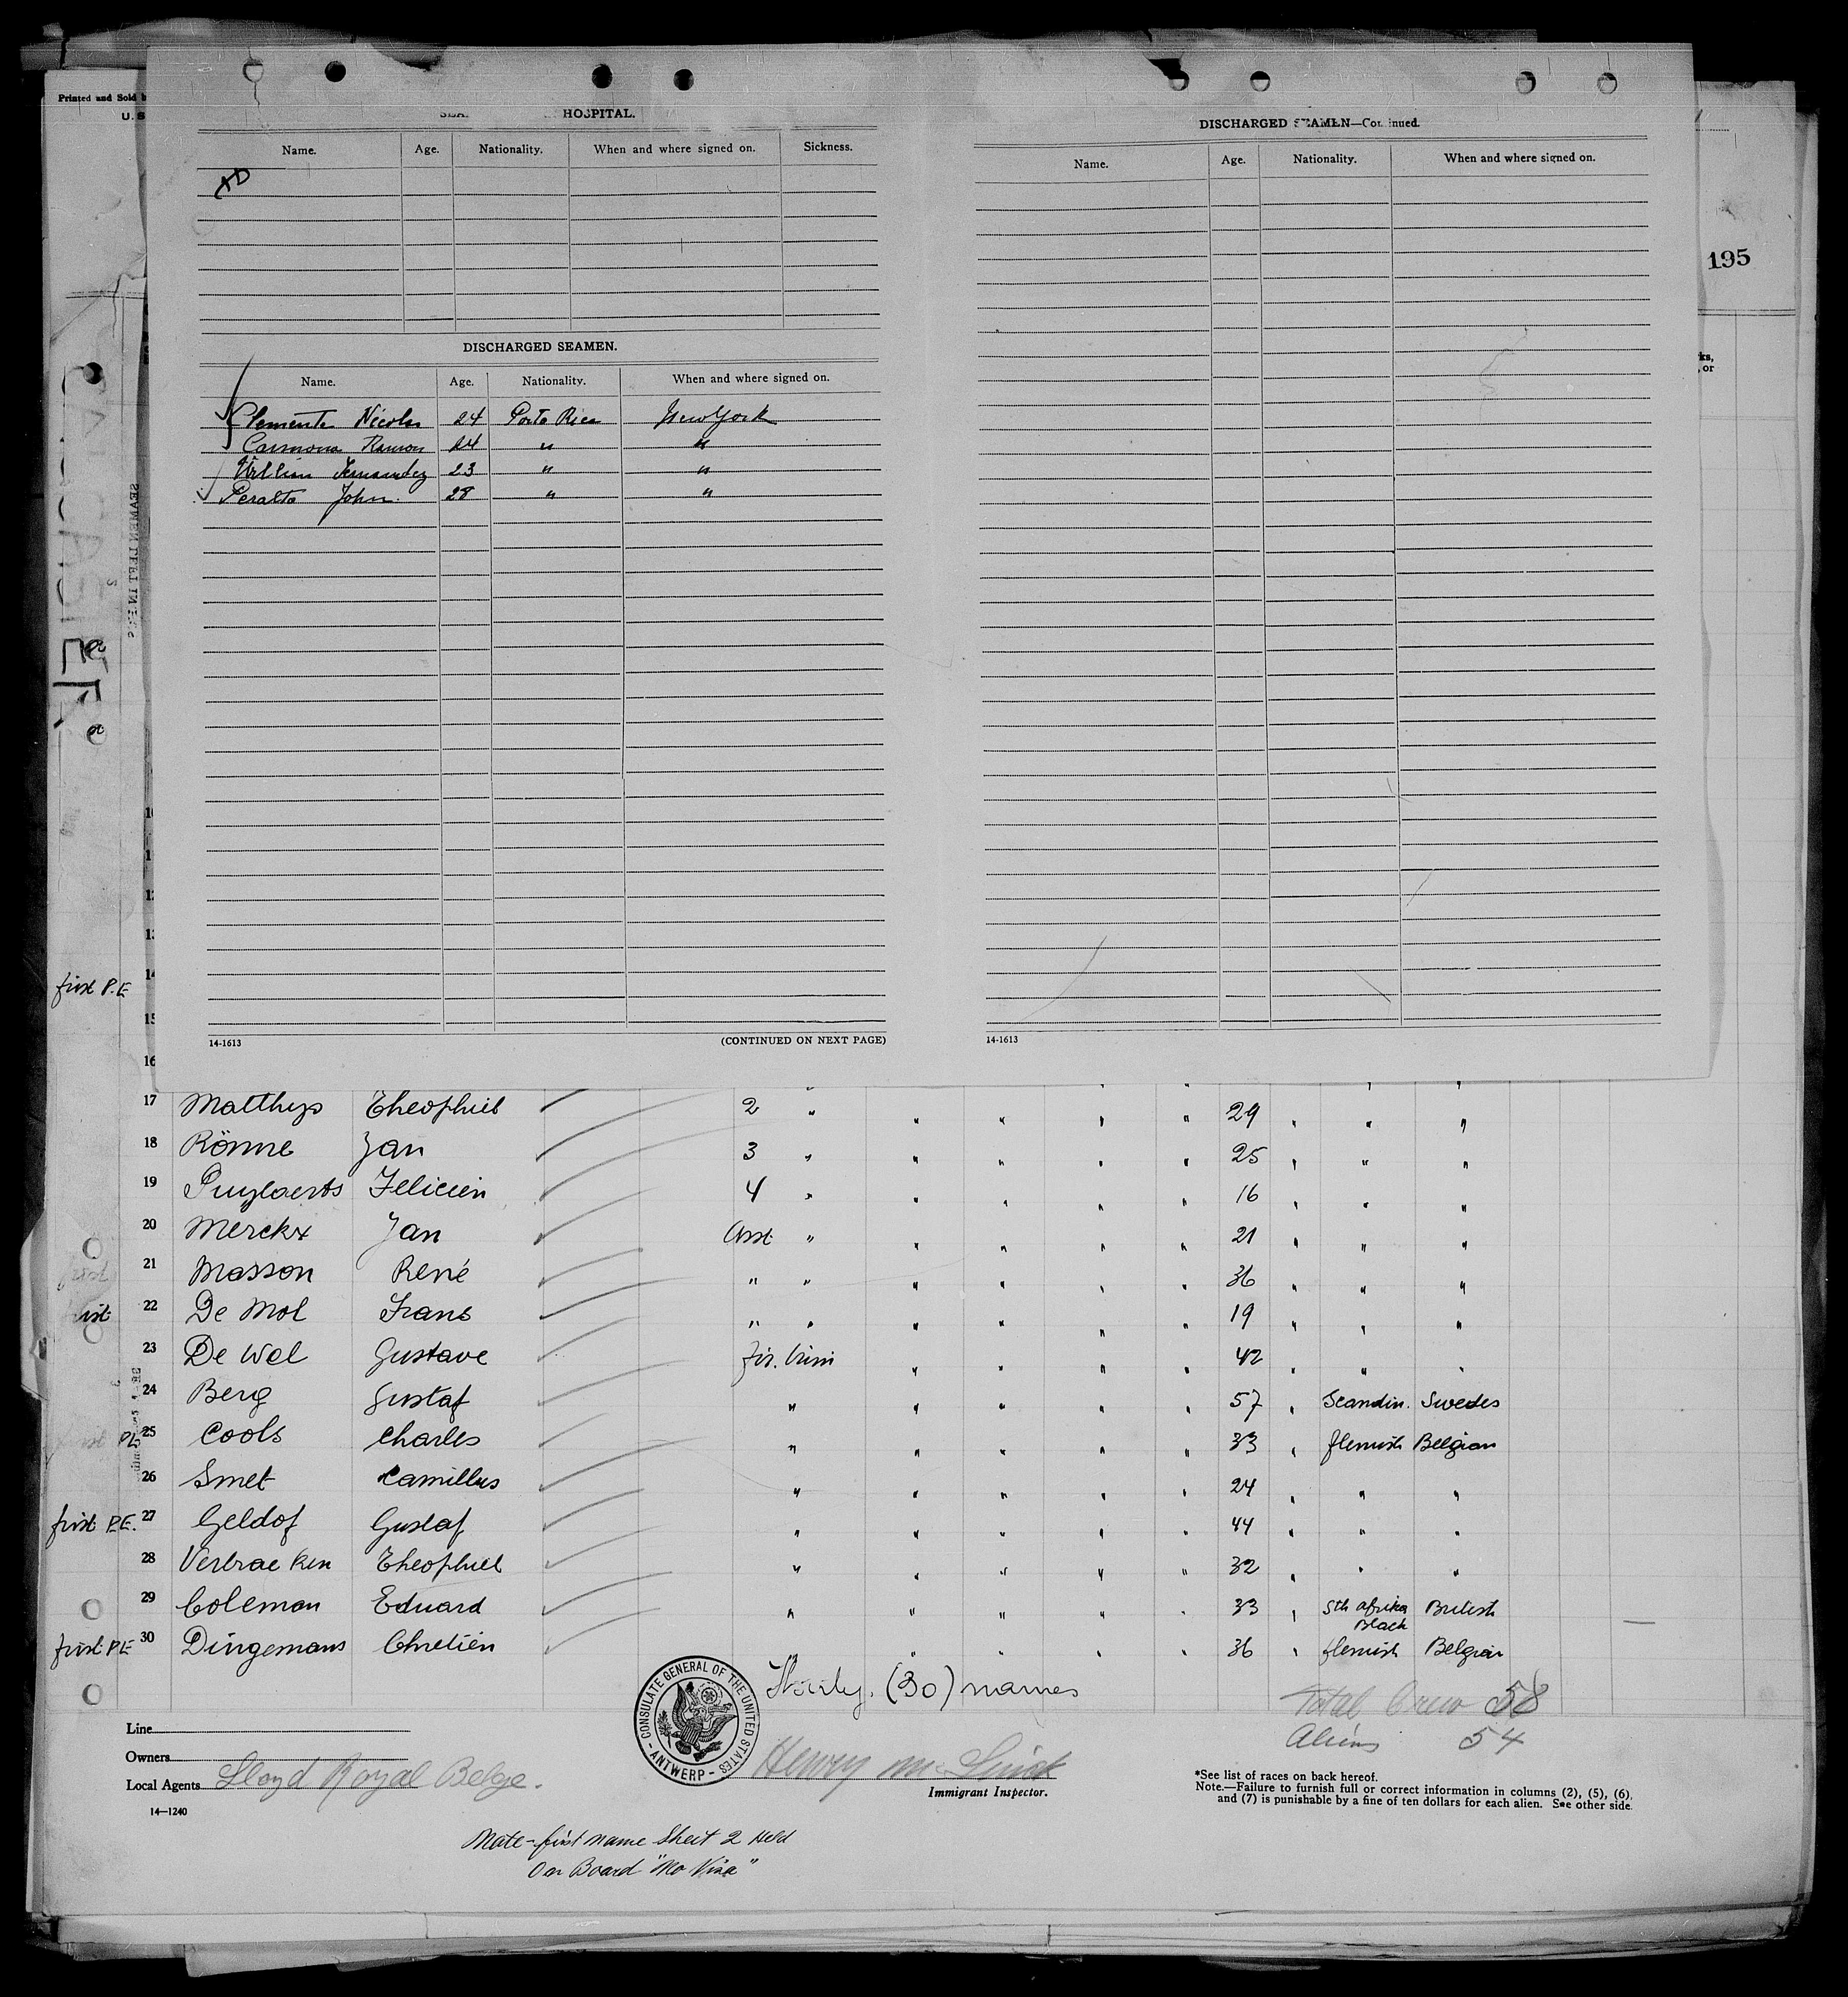 Printed and Sold b
U. S
HOSPITAL.
Name. Age. Nationality. When and where signed on. Sickness.
DISCHARGED SEAMEN.
Name. Age. Nationality. When and where signed on.
Clemente Nicolas 24 Porto Rico New York
Carmona Ramon 24 " "
William Fernandez 23 " "
Peralta John 28 " "
14-1613 (CONTINUED ON NEXT PAGE)
DISCHARGED SEAMEN—Continued.
Name. Age. Nationality. When and where signed on.
14-1613
195
ks,
, or
first P.E 14
15
16
17 Matthys Theophiel 2 " " " " " 29 " " "
18 Rönne Jan 3 " " " " " 25 " " "
19 Puylaerts Felicien 4 " " " " " 16 " " "
20 Merckx Jan Asst " " " " " 21 " " "
21 Masson René " " " " " " 36 " " "
22 De Mol Frans " " " " " " 19 " " "
23 De Wal Gustave " " " " 42 " " "
24 Berg Gustaf " " " " " 57 " Scandin. Swedes
25 Cools Charles " " " " " 33 " flemish Belgian
26 Smet Camillus " " " " " 24 " " "
first P.E. 27 Geldof Gustaf " " " " " 44 " " "
28 Verbraeken Theophiel " " " " " 32 " " "
29 Coleman Eduard " " " " " 33 " Sth Afrika Black British
first P.E 30 Dingemans Chretien " " " " 36 " flemish Belgian
(30) names
Total Crew 58
Aliens 54
CONSULATE GENERAL OF THE UNITED STATES - ANTWERP -
Line
Owners
Local Agents Lloyd Royal Belge.
14—1240
Immigrant Inspector.
*See list of races on back hereof.
Note.—Failure to furnish full or correct information in columns (2), (5), (6),
and (7) is punishable by a fine of ten dollars for each alien. See other side.
Mate - first name Sheet 2 Held
On Board "No Visa"